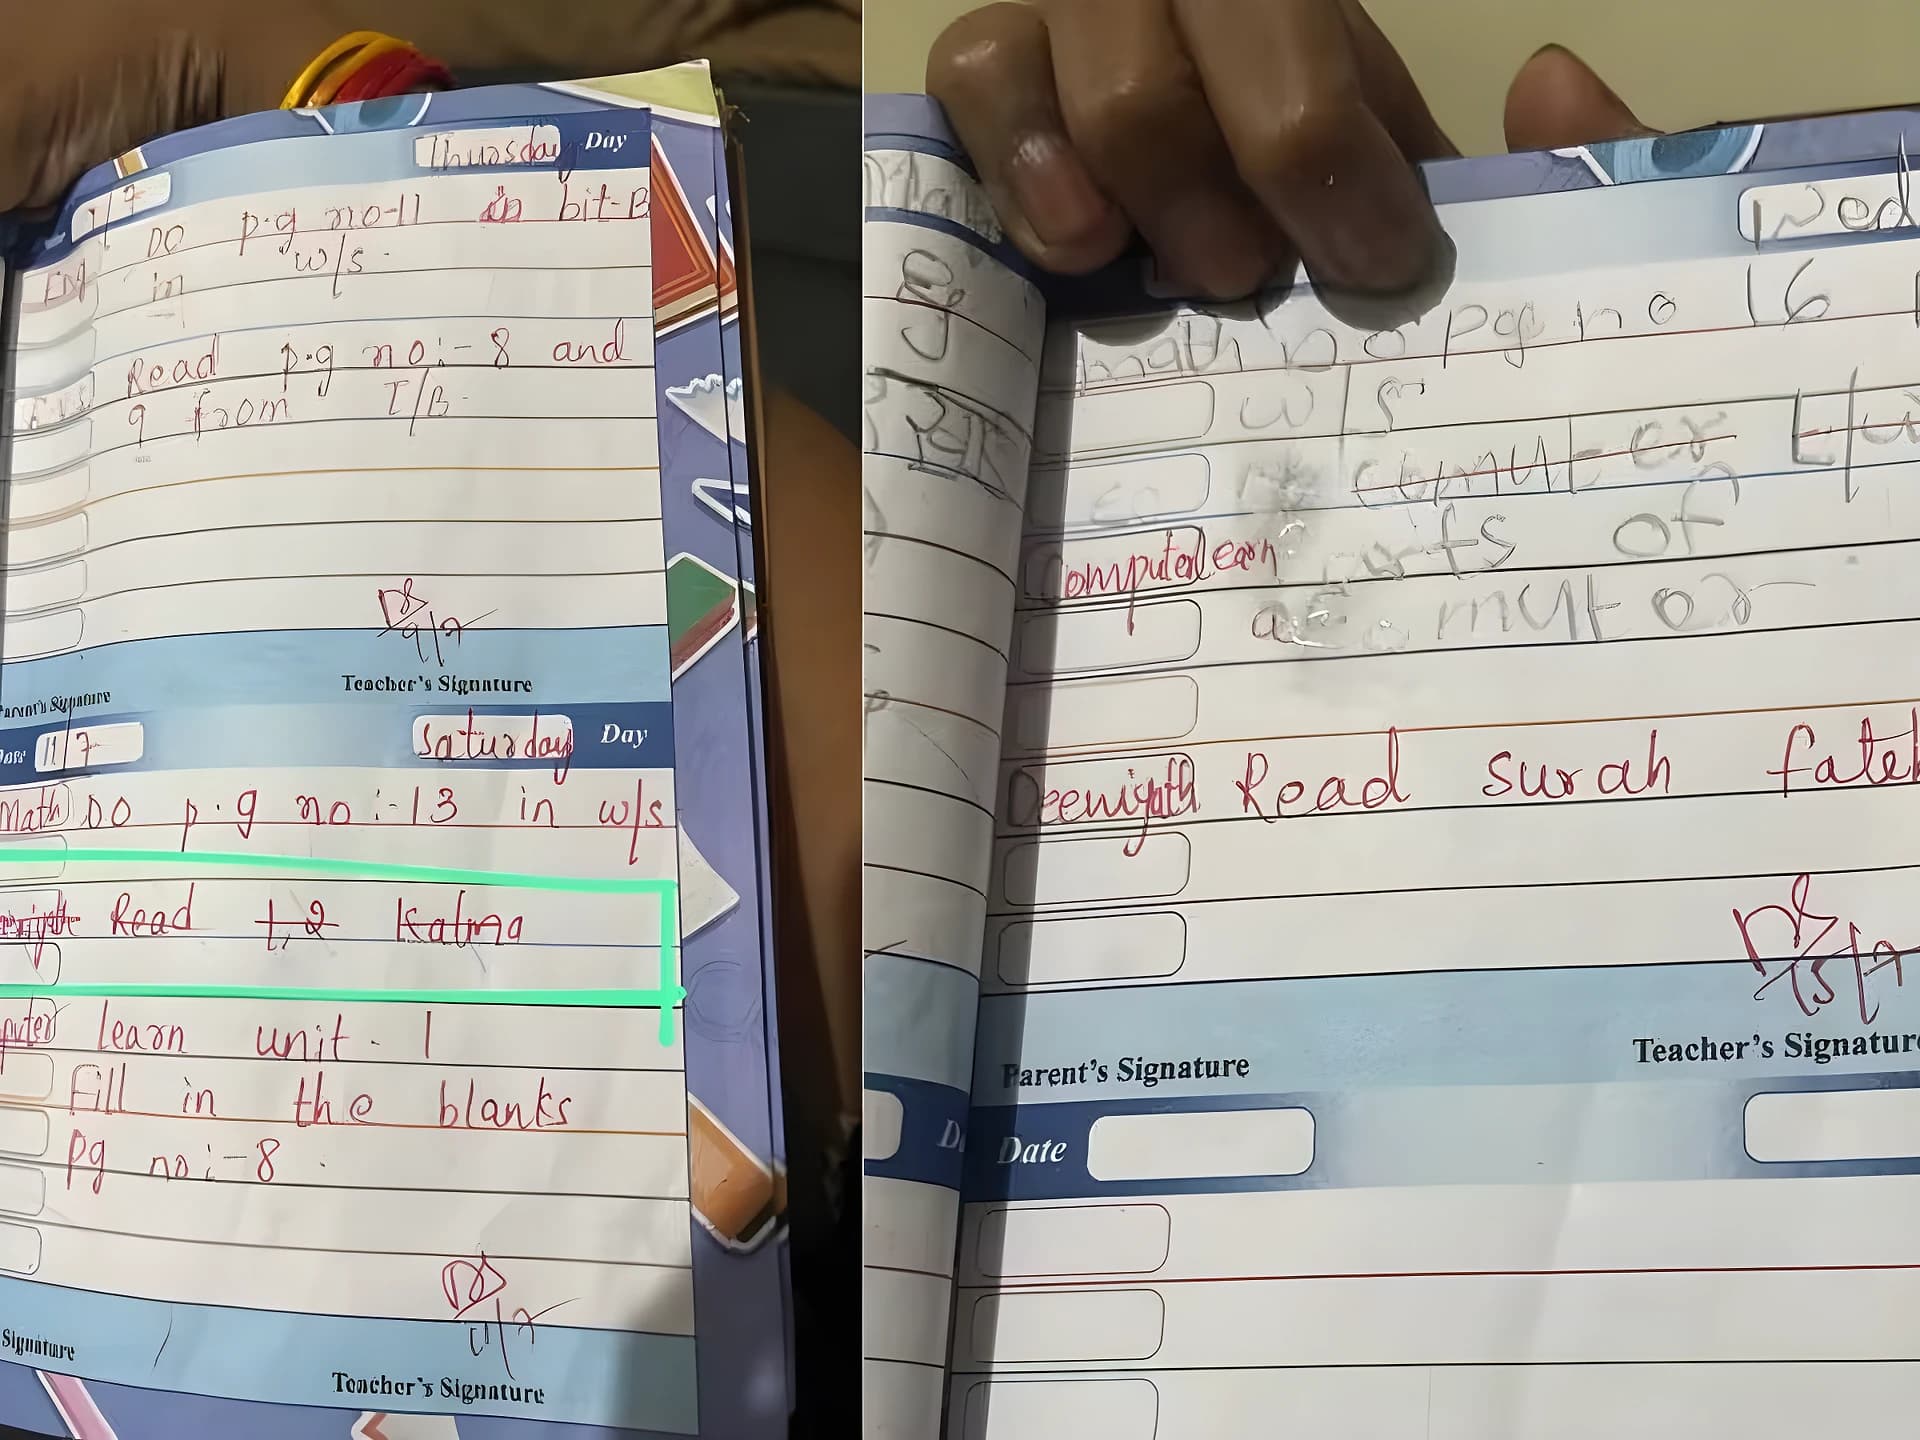 Thursday Day
DO p.g no-11 in bit-B
Eng in w/s.
Read p.g no:- 8 and
9 from T/B.
9/7
Teacher's Signature
Parent's Signature
Date 11/7 Saturday Day
Math DO p.g no:-13 in w/s
Read 1,2 Kalma
learn unit-1
Fill in the blanks
pg no:-8.
11/7
Signature
Teacher's Signature
Wed
math Do pg no 16
w/s
comuter
Computer learn parts of
a comutor
Deeniyath Read surah
15/7
Parent's Signature Teacher's Signature
Date